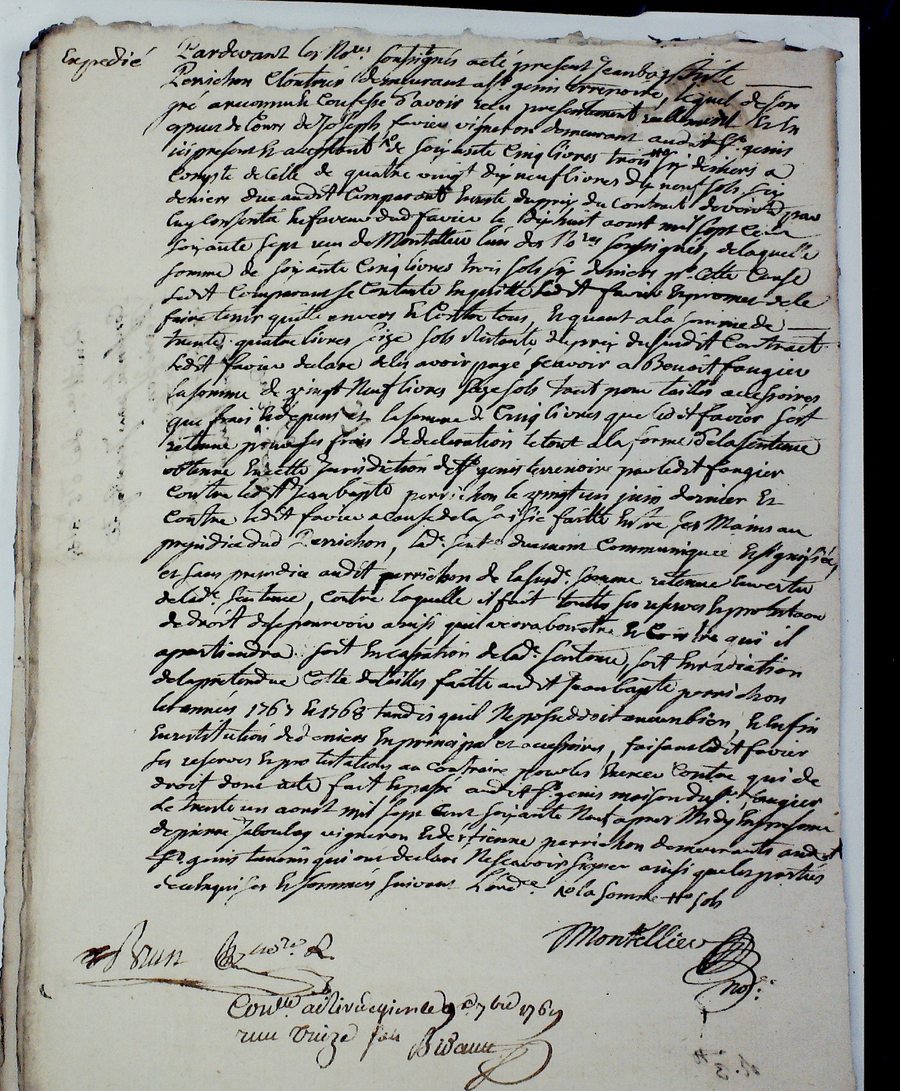 Expedié
Pardevant les No.res soussignés acté présent Jeanbaptiste
Perrichon demeurant a st. genis terrenoire, lequel de son
gré a reconnu & confesse d'avoir recu presentement reellement Et en
de Joseph favier vigneron demeurant audit St. genis
icy present Et acceptant soixante Cinq livres trois sols six deniers a
compte de Celle de quatre vingt dix neuf livres dix neuf sols six
deniers due audit Comparant Reste du prix du Contrat de vente par
luy consenti En faveur dud favier le dixhuit aoust mil sept cent
soixante sept receu de Montellier l'un des No.res soussignés, de laquelle
somme de soixante Cinq livres trois sols six deniers pr. Cette Cause
Ledit Comparant se Contente En quitte Ledit favier En promet de le
faire tenir quitte envers Et Contre tous, Et quant a la somme de
trente quatre livres seize sols Restante du prix dudit Contract
Ledit favier declare de les avoir payé scavoir a Benoit fougier
La somme de vingt Neuf livres seze sols tant pour tailles accessoires
que frais Et depens et la somme de Cinq livres que ledit favier sest
retenue pour ses frais de declaration le tout a la forme de la sentence
obtenue En cette Jurisdiction de St. genis terrenoire par ledit fougier
Contre ledit Jean bapte perrichon le vingt un juin dernier Et
Contre ledit favier a cause de la saisie faitte Entre ses Mains au
prejudice dud Perrichon, lad. sentce. duement Communiquée Et signifiée,
et sans prejudice audit perrichon de la susd. somme retenue En vertu
de lad. sentence, contre laquelle il fait toutes ses reserves Et protestaon
de droit de se pourvoir ainsi que verra bon etre Et Contre qui il
apartiendra. soit En cassation de lad. sentence, soit En radiation
de la pretendue Cotte de tailles faitte audit Jean bapte perrichon
les années 1767 Et 1768 tandis quil Ne possedoit aucun bien, Et Enfin
En restitution de deniers En principal et accessoires, faisant Ledit favier
ses reserves Et protestations au contraire pour les Exercer Contre qui de
droit dont acte fait Et passé audit St. genis maison du sr. fougier
Le trente un aoust mil sept cent soixante Neuf apres Midy En presence
de pierre Jaboulay vigneron Et d'etienne perrichon demeurants audit
St. genis temoins qui ont declaré Ne scavoir signer ainsi que les parties
de ce Enquises Et sommées suivant L'ord.e
Brun nore. R.
Montellier
no.re
Conlle. a rivedegier le 9e 7bre 1769
reçu treize sols